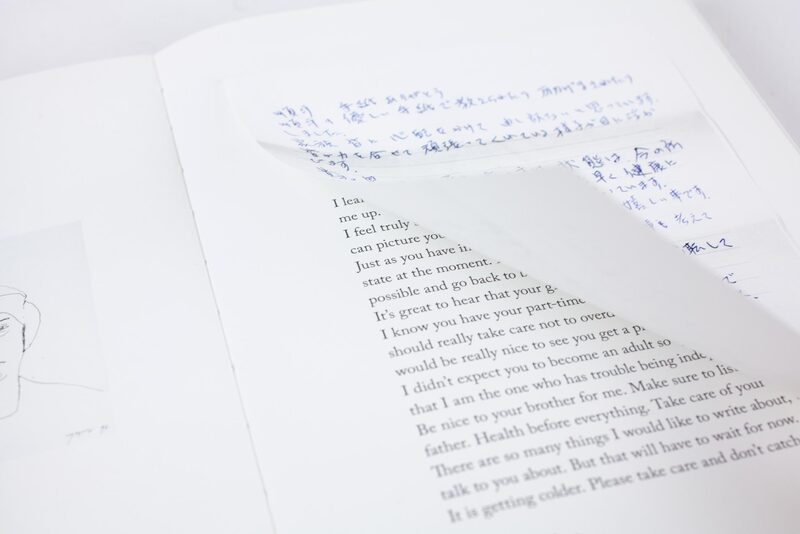 手紙 ありがとう
優しい手紙で教えられたり
しました。
に心配をかけて と思っています。
力を合せて頑張ってくれている様子が目に浮か
びます。
態は、今の所
早く健康に
ています。
嬉しい事です。
考えて
転して
で
I lea
me up.
I feel truly
can picture you
Just as you have in
state at the moment.
possible and go back to b
It's great to hear that your g
I know you have your part-time
should really take care not to overd
would be really nice to see you get a p
I didn't expect you to become an adult so
that I am the one who has trouble being inde
Be nice to your brother for me. Make sure to lis
father. Health before everything. Take care of your
There are so many things I would like to write about,
talk to you about. But that will have to wait for now.
It is getting colder. Please take care and don't catch